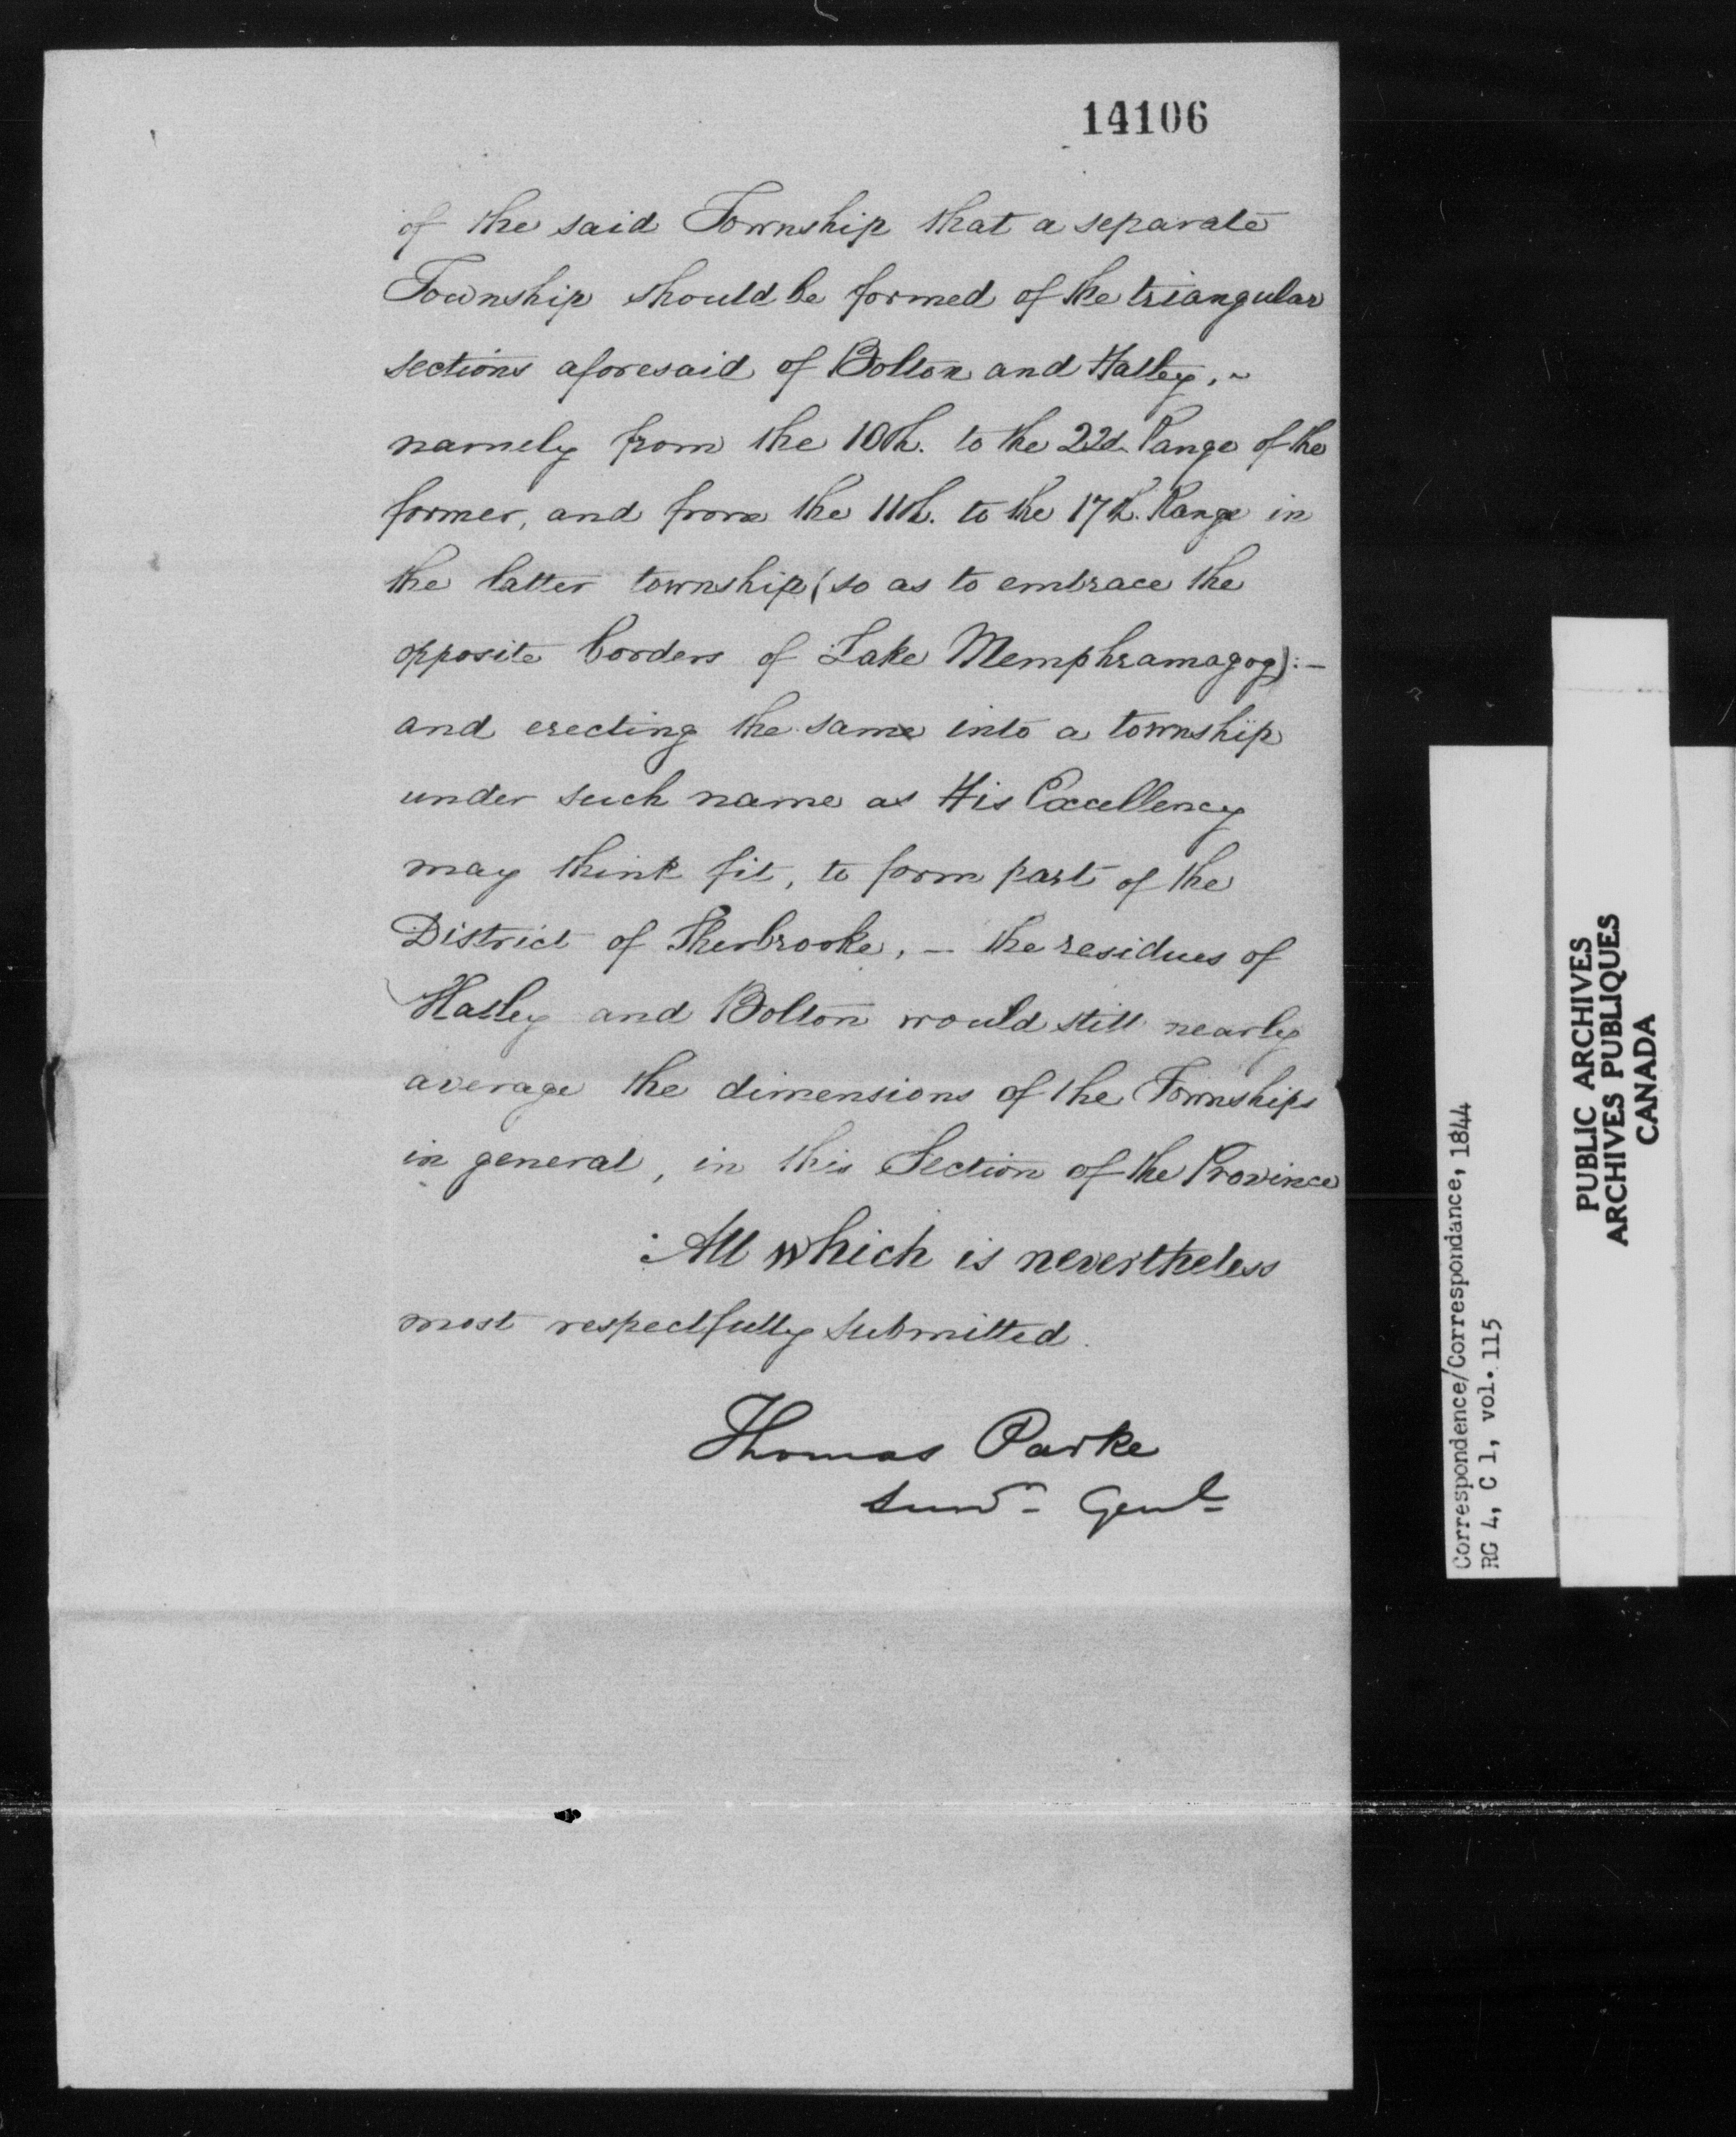 14106
of the said Township that a separate
Township should be formed of the triangular
sections aforesaid of Bolton and Hatley, ~
namely from the 10th. to the 22d. Range of the
former, and from the 11th. to the 17th. Range in
the latter township (so as to embrace the
opposite borders of Lake Memphramagog):—
and erecting the same into a township
under such name as His Excellency
may think fit, to form part of the
District of Sherbrooke, — the residues of
Hatley and Bolton would still nearly
average the dimensions of the Townships
in general, in this Section of the Province
All which is nevertheless
most respectfully submitted.
Thomas Parke
Survr. Genl.
Correspondence/Correspondance, 1844
RG 4, C 1, vol. 115
PUBLIC ARCHIVES
ARCHIVES PUBLIQUES
CANADA